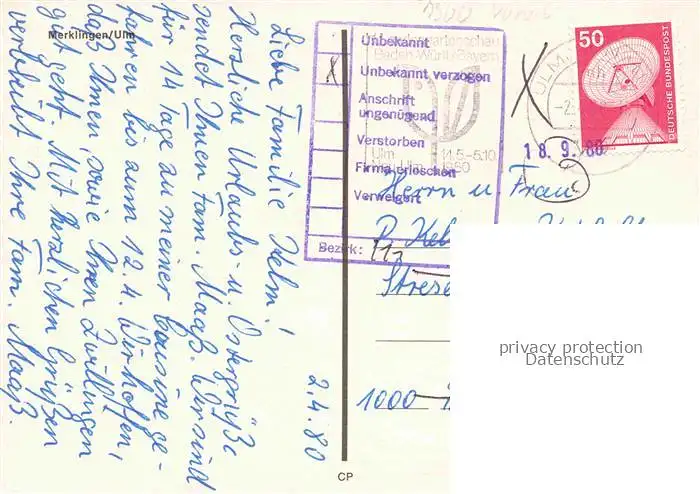 Merklingen/Ulm
Liebe Familie Helm!
Herzliche Urlaubs- u. Ostergrüße
sendet Ihnen Fam. Maaß. Wir sind
für 14 Tage zu meiner Cousine ge-
fahren bis zum 12.4. Wir hoffen,
daß Ihnen, sowie Ihren Zwillingen
gut geht. Mit herzlichen Grüßen
verbleibt Ihre Fam. Maaß.
2.4.80
CP
Unbekannt
Unbekannt verzogen
Anschrift
ungenügend
Verstorben
Firma erloschen
Verweigert
Bezirk:
Landesgartenschau
Baden-Württ/Bayern
Ulm 11.5-5.10.
1980
ULM
50
DEUTSCHE BUNDESPOST
18.9.80
Herrn u. Frau
Strese
1000
privacy protection
Datenschutz